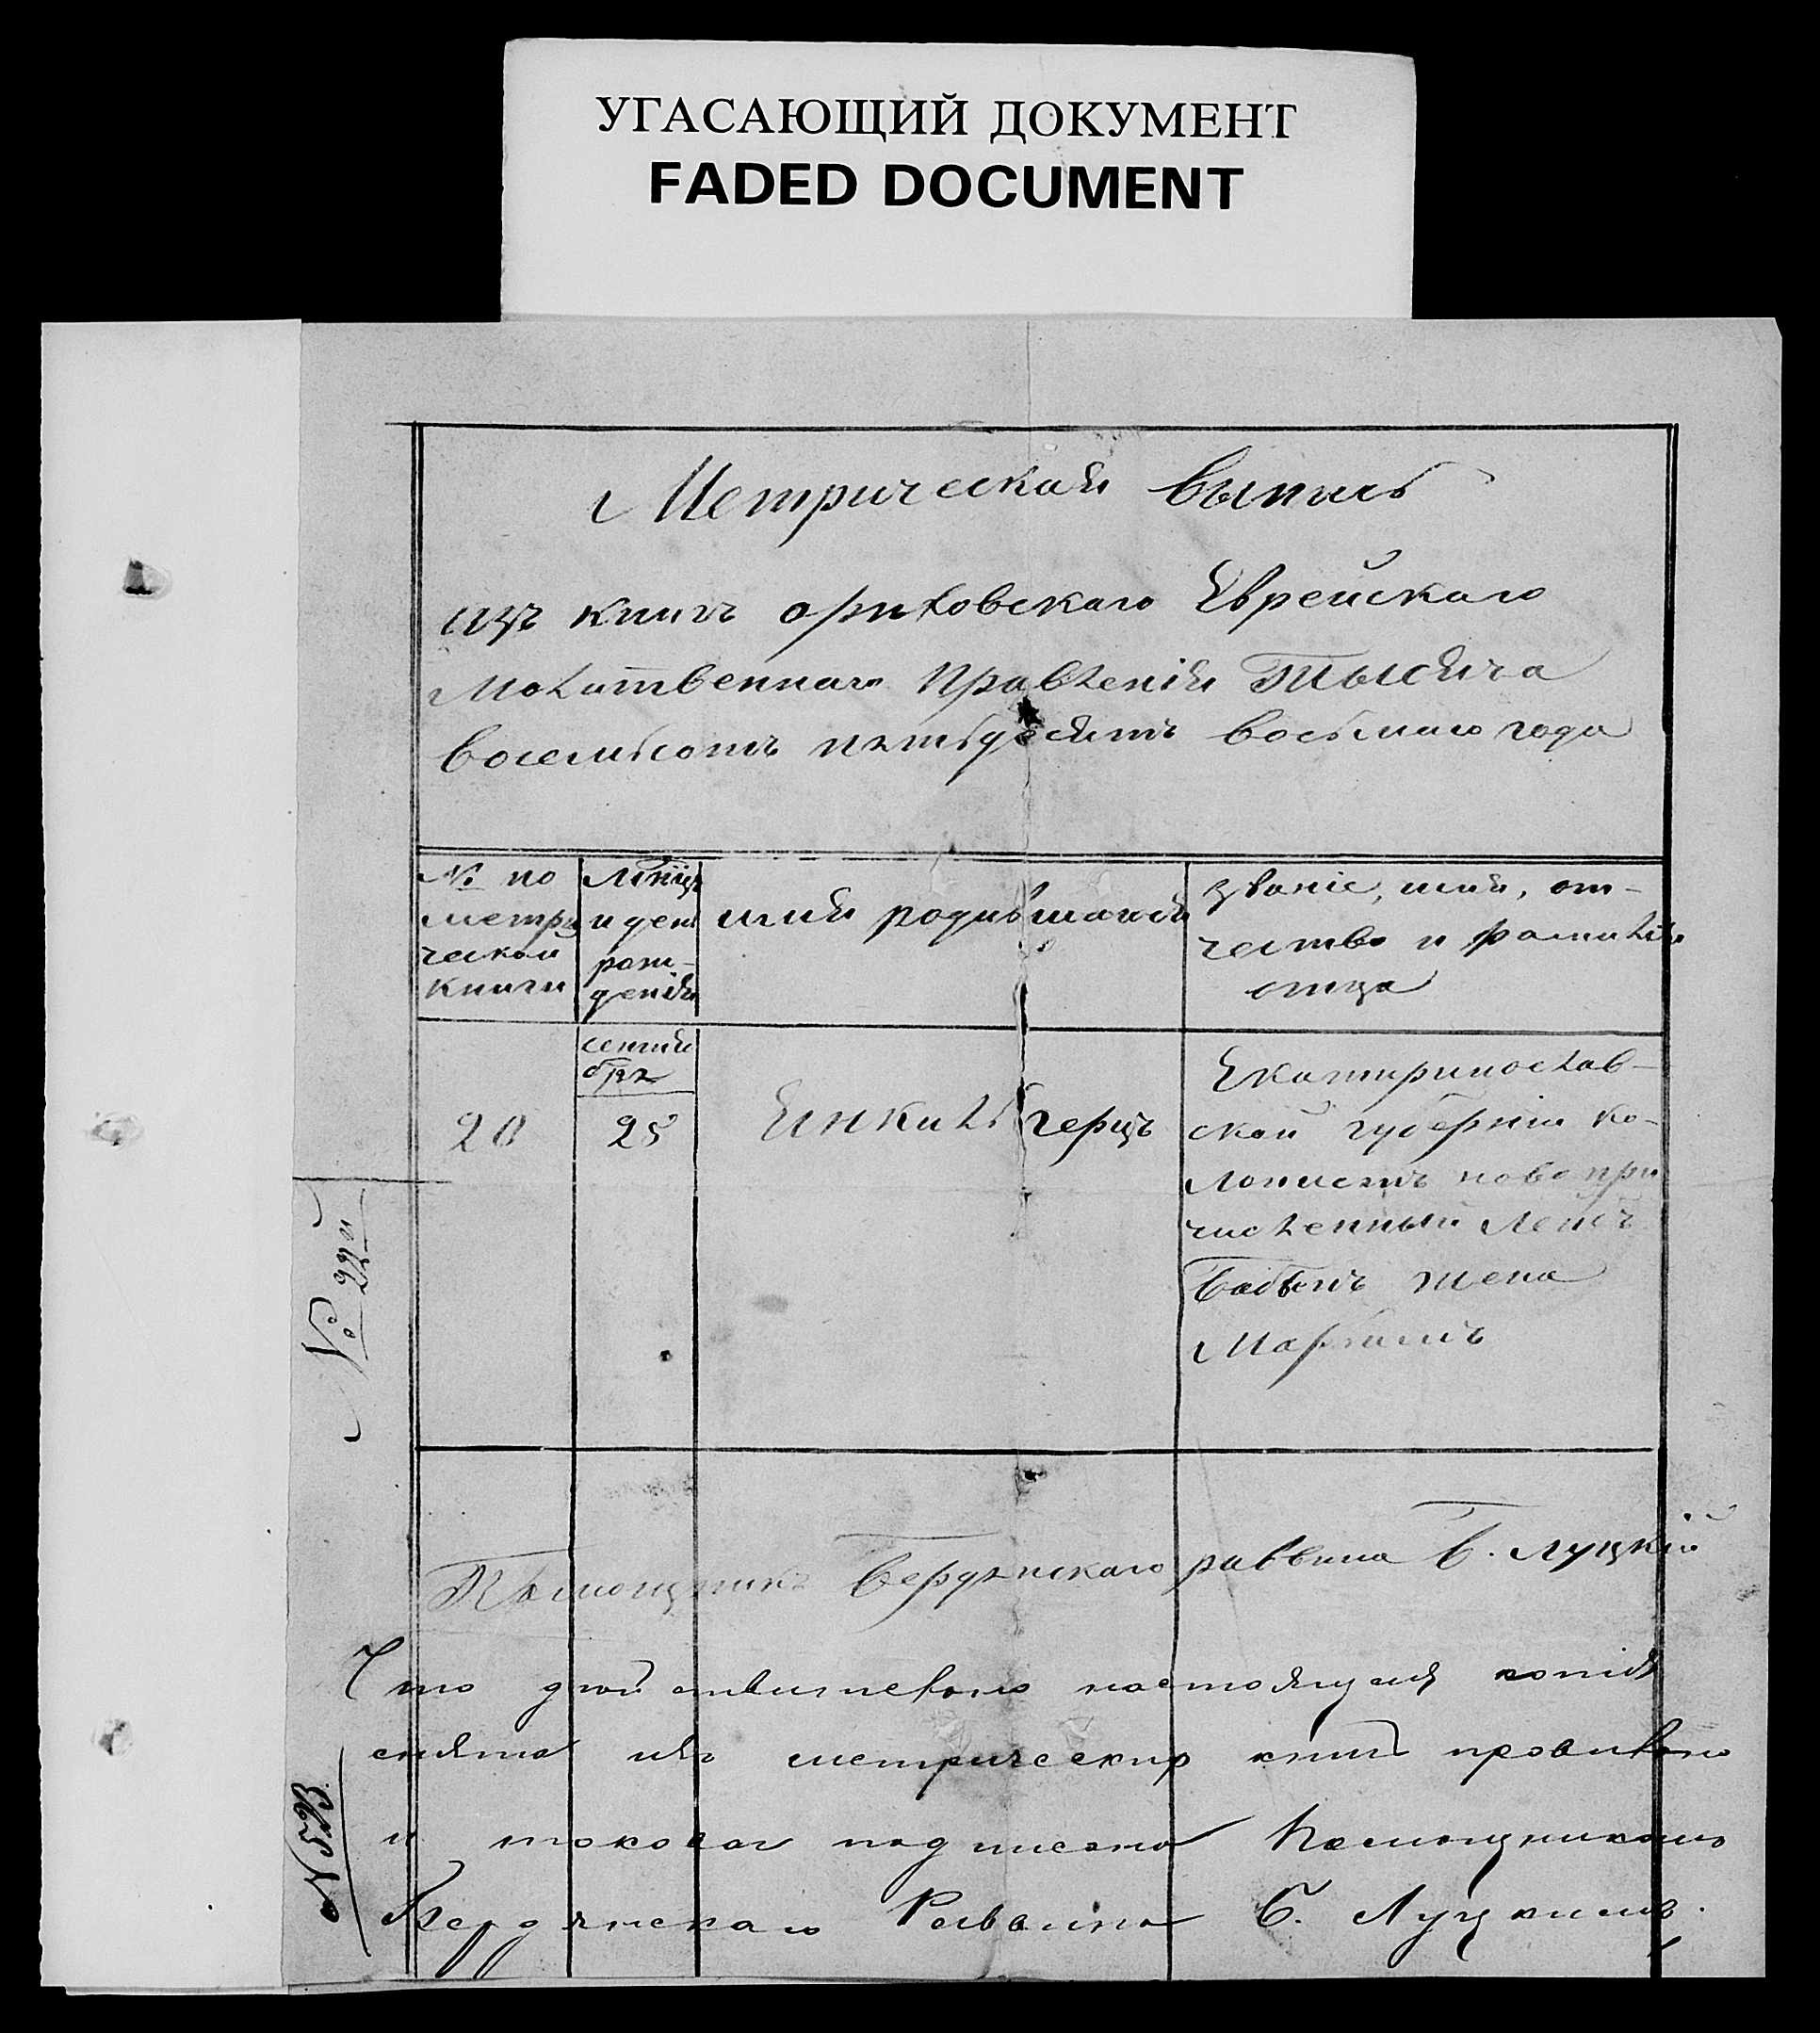 УГАСАЮЩИЙ ДОКУМЕНТ
FADED DOCUMENT
Метрическая выпись
изъ книгъ ориховскаго Еврейскаго
Молитвеннаго Правленія Тысяча
восемьсотъ пятьдесятъ восьмаго года
№ по
метри
ческой
книги
Мѣсяцъ
и день
рож-
денія
имя родившагося
званіе, имя, от-
чество и фамилія
отца
20
сентя
бря
25
Енкиль герцъ
Екатиринослав-
ской губерніи ко-
лонистъ новопри
численный Лейбъ
жена
№ 22й
Помощникъ Бердянскаго раввина Б. Луцкій
Что действительно настоящая копія
снята изъ метрическихъ книгъ правильно
и таковая подписана Помощникомъ
Бердянскаго Раввина Б. Луцкимъ.